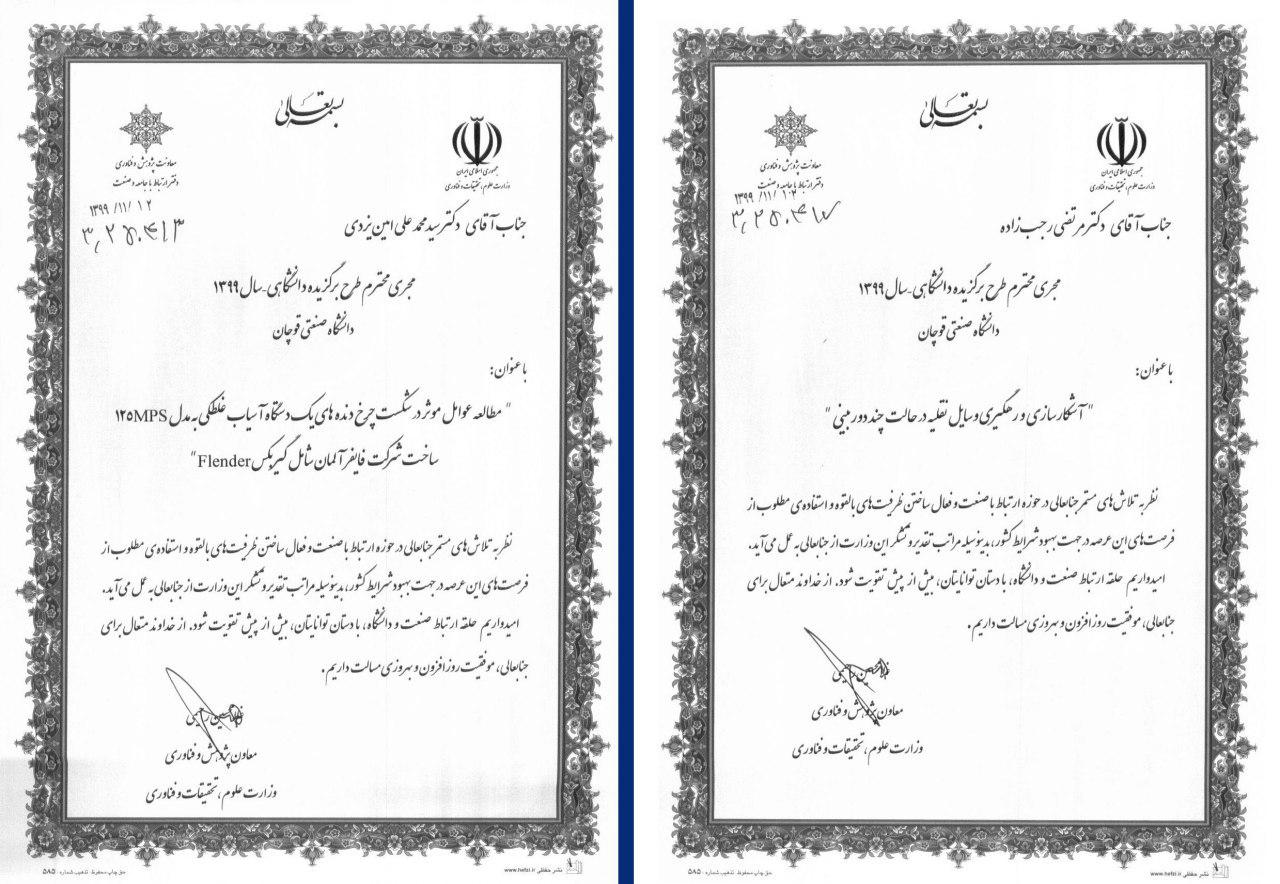 بسمه تعالی
جمهوری اسلامی ایران
وزارت علوم، تحقیقات و فناوری
معاونت پژوهش و فناوری
دفتر ارتباط با جامعه و صنعت
۱۳۹۹/۱۱/۱۲
جناب آقای دکتر سید محمد علی امین یزدی
مجری محترم طرح برگزیده دانشگاهی-سال ۱۳۹۹
دانشگاه صنعتی قوچان
با عنوان:
" مطالعه عوامل موثر در شکست چرخ دنده های یک دستگاه آسیاب غلطکی به مدل ۱۲۵MPS
ساخت شرکت فایفر آلمان شامل گیربکس Flender"
نظر به تلاش های مستمر جنابعالی در حوزه ارتباط با صنعت و فعال ساختن ظرفیت های بالقوه و استفاده ی مطلوب از
فرصت های این عرصه در جهت بهبود شرایط کشور، بدینوسیله مراتب تقدیر و تشکر این وزارت از جنابعالی به عمل می آید.
امیدواریم حلقه ارتباط صنعت و دانشگاه، با دستان توانایتان، بیش از پیش تقویت شود. از خداوند متعال برای
جنابعالی، موفقیت روزافزون و بهروزی مسالت داریم.
غلامحسین رحیمی
معاون پژوهش و فناوری
وزارت علوم، تحقیقات و فناوری
نشر حفظی www.hefzi.ir
حق چاپ محفوظ. تذهیب شماره: ۵۸۵
بسمه تعالی
جمهوری اسلامی ایران
وزارت علوم، تحقیقات و فناوری
معاونت پژوهش و فناوری
دفتر ارتباط با جامعه و صنعت
۱۳۹۹/۱۱/۱۲
جناب آقای دکتر مرتضی رجب زاده
مجری محترم طرح برگزیده دانشگاهی-سال ۱۳۹۹
دانشگاه صنعتی قوچان
با عنوان:
" آشکارسازی و رهگیری وسایل نقلیه در حالت چند دوربینی "
نظر به تلاش های مستمر جنابعالی در حوزه ارتباط با صنعت و فعال ساختن ظرفیت های بالقوه و استفاده ی مطلوب از
فرصت های این عرصه در جهت بهبود شرایط کشور، بدینوسیله مراتب تقدیر و تشکر این وزارت از جنابعالی به عمل می آید.
امیدواریم حلقه ارتباط صنعت و دانشگاه، با دستان توانایتان، بیش از پیش تقویت شود. از خداوند متعال برای
جنابعالی، موفقیت روزافزون و بهروزی مسالت داریم.
غلامحسین رحیمی
معاون پژوهش و فناوری
وزارت علوم، تحقیقات و فناوری
نشر حفظی www.hefzi.ir
حق چاپ محفوظ. تذهیب شماره: ۵۸۵